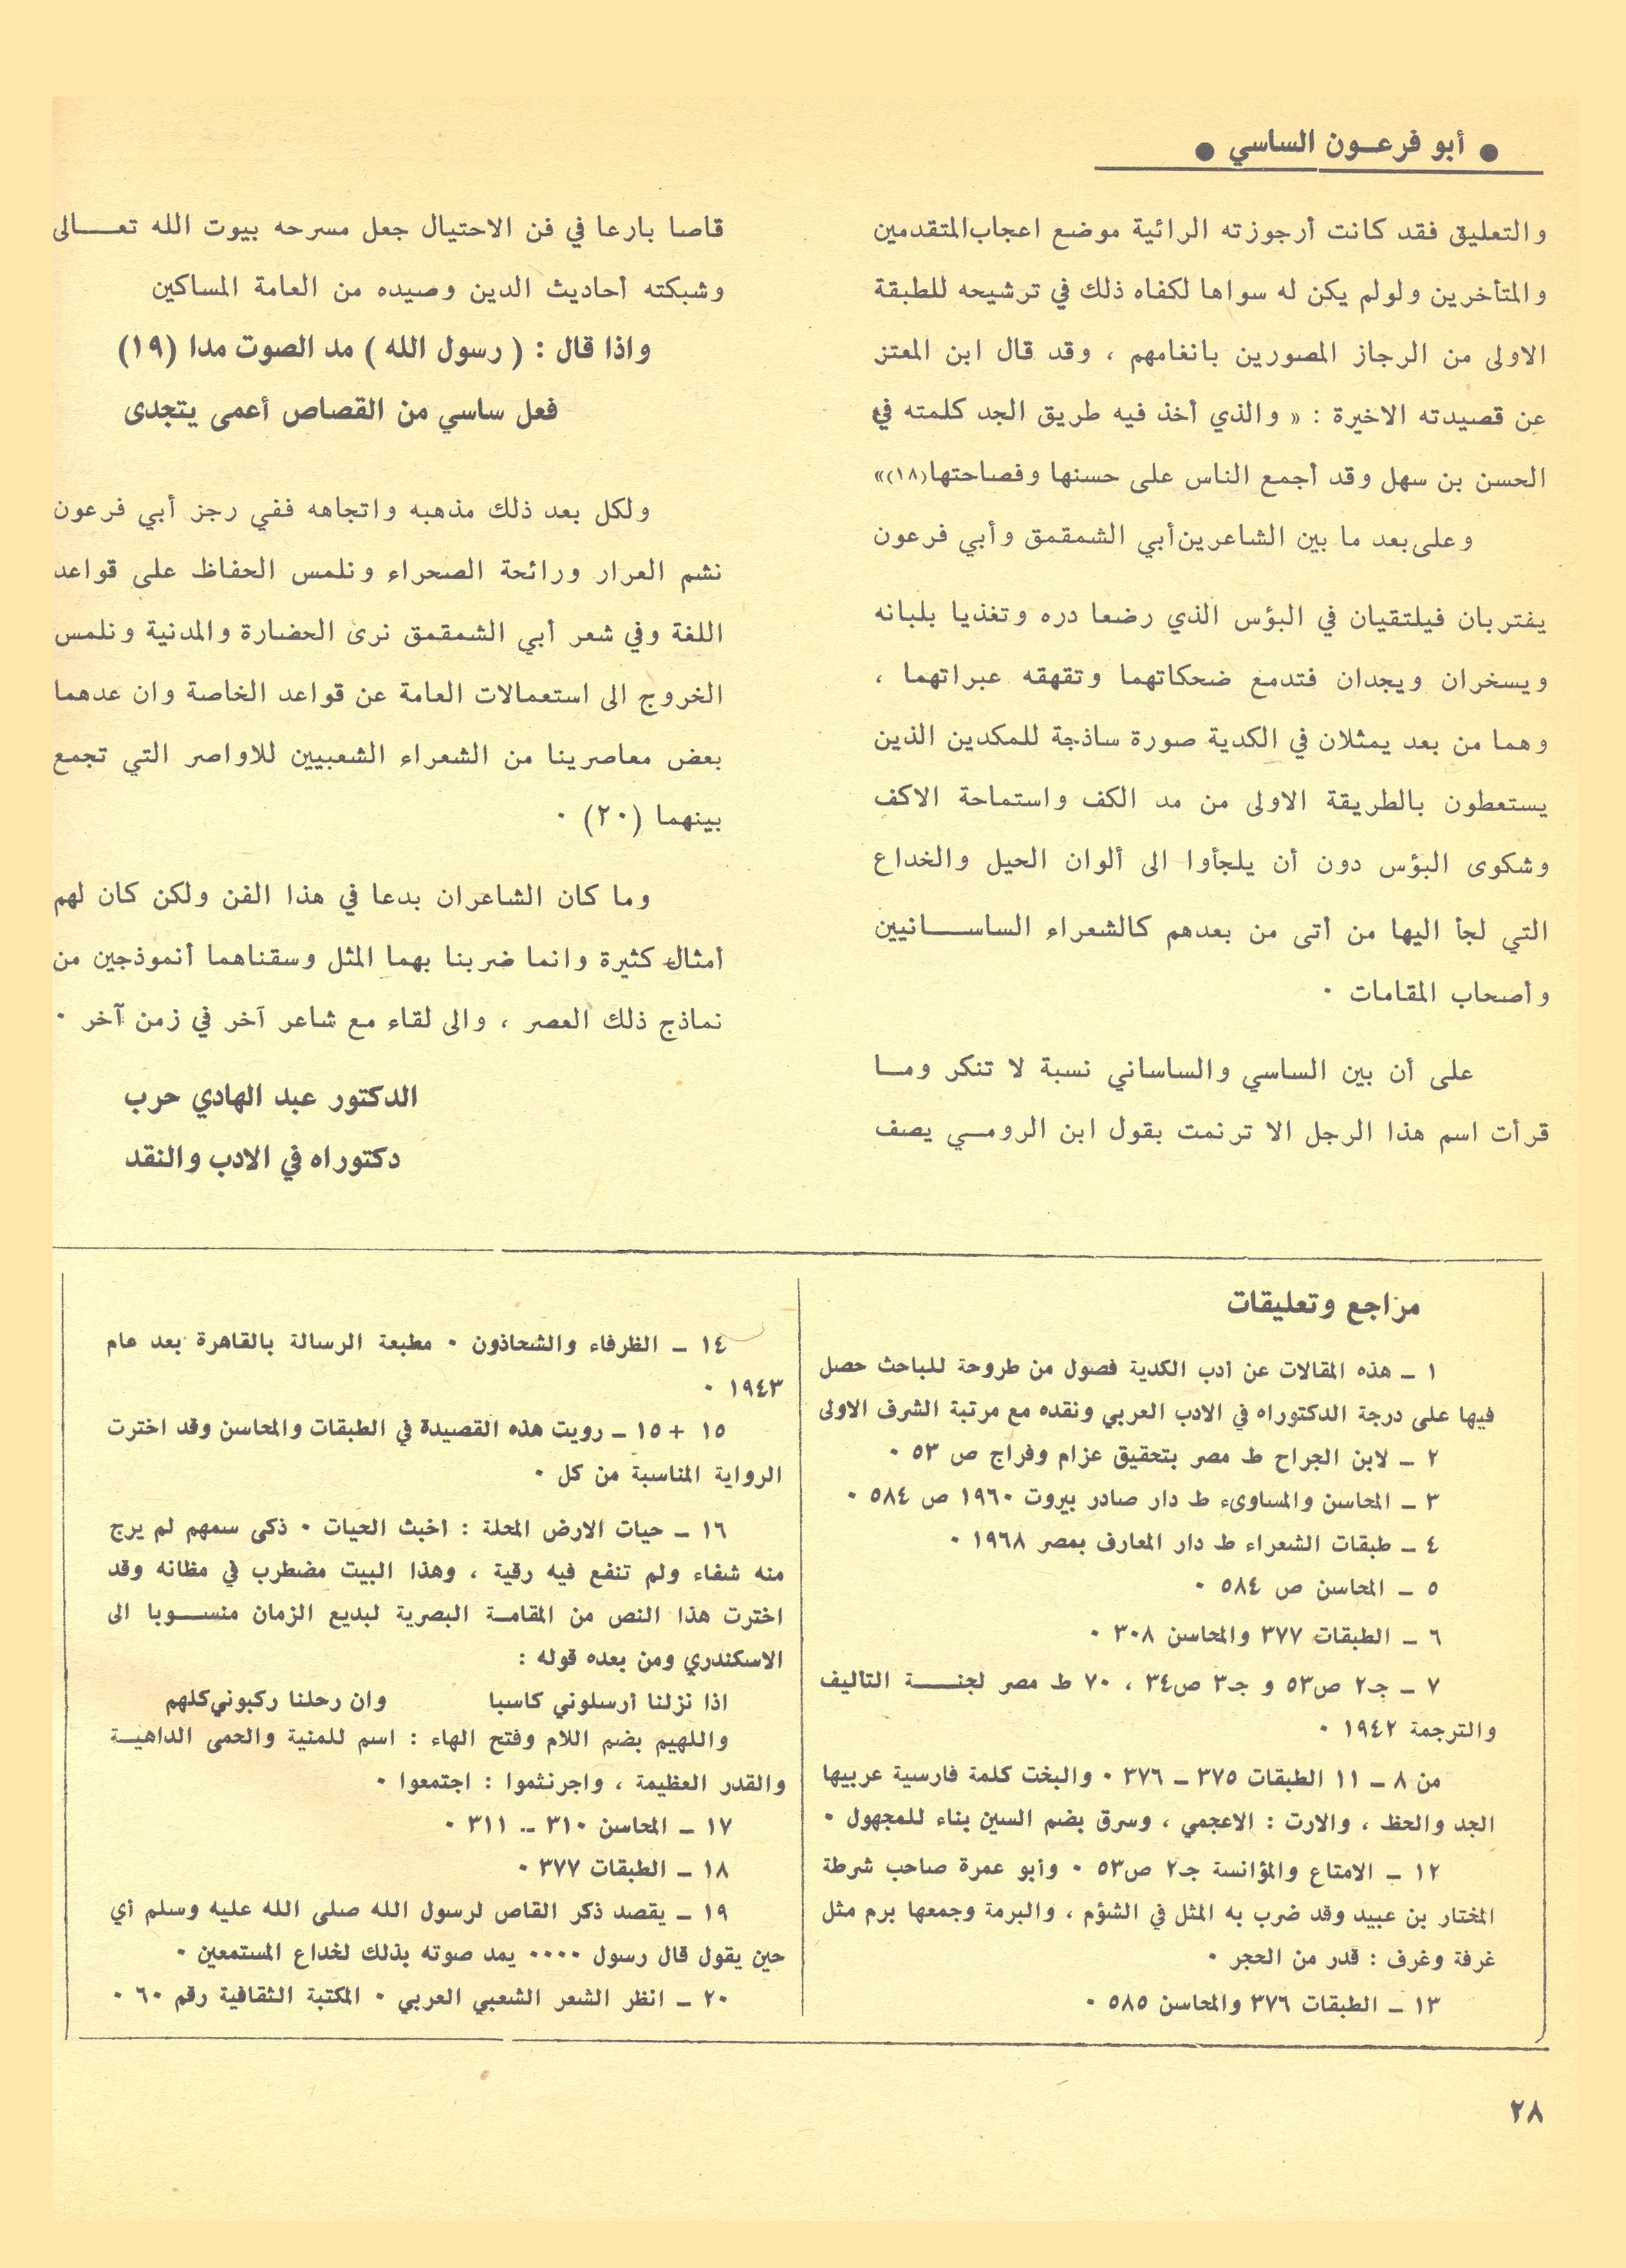 ● أبو فرعـون الساسي ●
والتعليق فقد كانت أرجوزته الرائية موضع اعجاب المتقدمين
والمتأخرين ولولم يكن له سواها لكفاه ذلك في ترشيحه للطبقة
الاولى من الرجاز المصورين بانغامهم ، وقد قال ابن المعتز
عن قصيدته الاخيرة : « والذي أخذ فيه طريق الجد كلمته في
الحسن بن سهل وقد أجمع الناس على حسنها وفصاحتها(١٨)»
وعلى بعد ما بين الشاعرين أبي الشمقمق وأبي فرعون
يفتربان فيلتقيان في البؤس الذي رضعا دره وتغذيا بلبانه
ويسخران ويجدان فتدمع ضحكاتهما وتقهقه عبراتهما ،
وهما من بعد يمثلان في الكدية صورة ساذجة للمكدين الذين
يستعطون بالطريقة الاولى من مد الكف واستماحة الاكف
وشكوى البؤس دون أن يلجأوا الى ألوان الحيل والخداع
التي لجأ اليها من أتى من بعدهم كالشعراء الساسـانيين
وأصحاب المقامات ٠
على أن بين الساسي والساساني نسبة لا تنكر ومـا
قرأت اسم هذا الرجل الا ترنمت بقول ابن الرومـي يصف
قاصا بارعا في فن الاحتيال جعل مسرحه بيوت الله تعـالى
وشبكته أحاديث الدين وصيده من العامة المساكين
واذا قال : ( رسول الله ) مد الصوت مدا (١٩)
فعل ساسي من القصاص أعمى يتجدى
ولكل بعد ذلك مذهبه واتجاهه ففي رجز أبي فرعون
نشم العرار ورائحة الصحراء ونلمس الحفاظ على قواعد
اللغة وفي شعر أبي الشمقمق نرى الحضارة والمدنية ونلمس
الخروج الى استعمالات العامة عن قواعد الخاصة وان عدهما
بعض معاصرينا من الشعراء الشعبيين للاواصر التي تجمع
بينهما (٢٠) ٠
وما كان الشاعران بدعا في هذا الفن ولكن كان لهم
أمثال كثيرة وانما ضربنا بهما المثل وسقناهما أنموذجين من
نماذج ذلك العصر ، والى لقاء مع شاعر آخر في زمن آخر ٠
الدكتور عبد الهادي حرب
دكتوراه في الادب والنقد
مراجع وتعليقات
١ ـ هذه المقالات عن أدب الكدية فصول من طروحة للباحث حصل
فيها على درجة الدكتوراه في الادب العربي ونقده مع مرتبة الشرف الاولى
٢ ـ لابن الجراح ط مصر بتحقيق عزام وفراج ص ٥٣ ٠
٣ ـ المحاسن والمساوىء ط دار صادر بيروت ١٩٦٠ ص ٥٨٤ ٠
٤ ـ طبقات الشعراء ط دار المعارف بمصر ١٩٦٨ ٠
٥ ـ المحاسن ص ٥٨٤ ٠
٦ ـ الطبقات ٣٧٧ والمحاسن ٣٠٨ ٠
٧ ـ جـ٢ ص٥٣ و جـ٣ ص٣٤ ، ٧٠ ط مصر لجنـة التأليف
والترجمة ١٩٤٢ ٠
من ٨ ـ ١١ الطبقات ٣٧٥ ـ ٣٧٦ ٠ والبخت كلمة فارسية عربيها
الجد والحظ ، والارت : الاعجمي ، وسرق بضم السين بناء للمجهول ٠
١٢ ـ الامتاع والمؤانسة جـ٢ ص٥٣ ٠ وأبو عمرة صاحب شرطة
المختار بن عبيد وقد ضرب به المثل في الشؤم ، والبرمة وجمعها برم مثل
غرفة وغرف : قدر من الحجر ٠
١٣ ـ الطبقات ٣٧٦ والمحاسن ٥٨٥ ٠
١٤ ـ الظرفاء والشحاذون ٠ مطبعة الرسالة بالقاهرة بعد عام
١٩٤٣ ٠
١٥ + ١٥ ـ رويت هذه القصيدة في الطبقات والمحاسن وقد اخترت
الرواية المناسبة من كل ٠
١٦ ـ حيات الارض المحلة : أخبث الحيات ٠ ذكى سمهم لم يرج
منه شفاء ولم تنفع فيه رقية ، وهذا البيت مضطرب في مظانه وقد
اخترت هذا النص من المقامـة البصرية لبديع الزمان منسـوبا الى
الاسكندري ومن بعده قوله :
اذا نزلنا أرسلوني كاسبا وان رحلنا ركبوني كلهم
واللهيم بضم اللام وفتح الهاء : اسم للمنية والحمى الداهيـة
والقدر العظيمة ، واجرنثموا : اجتمعوا ٠
١٧ ـ المحاسن ٣١٠ ـ ٣١١ ٠
١٨ ـ الطبقات ٣٧٧ ٠
١٩ ـ يقصد ذكر القاص لرسول الله صلى الله عليه وسلم أي
حين يقول قال رسول ٠٠٠٠ يمد صوته بذلك لخداع المستمعين ٠
٢٠ ـ انظر الشعر الشعبي العربي ٠ المكتبة الثقافية رقم ٦٠ ٠
٢٨